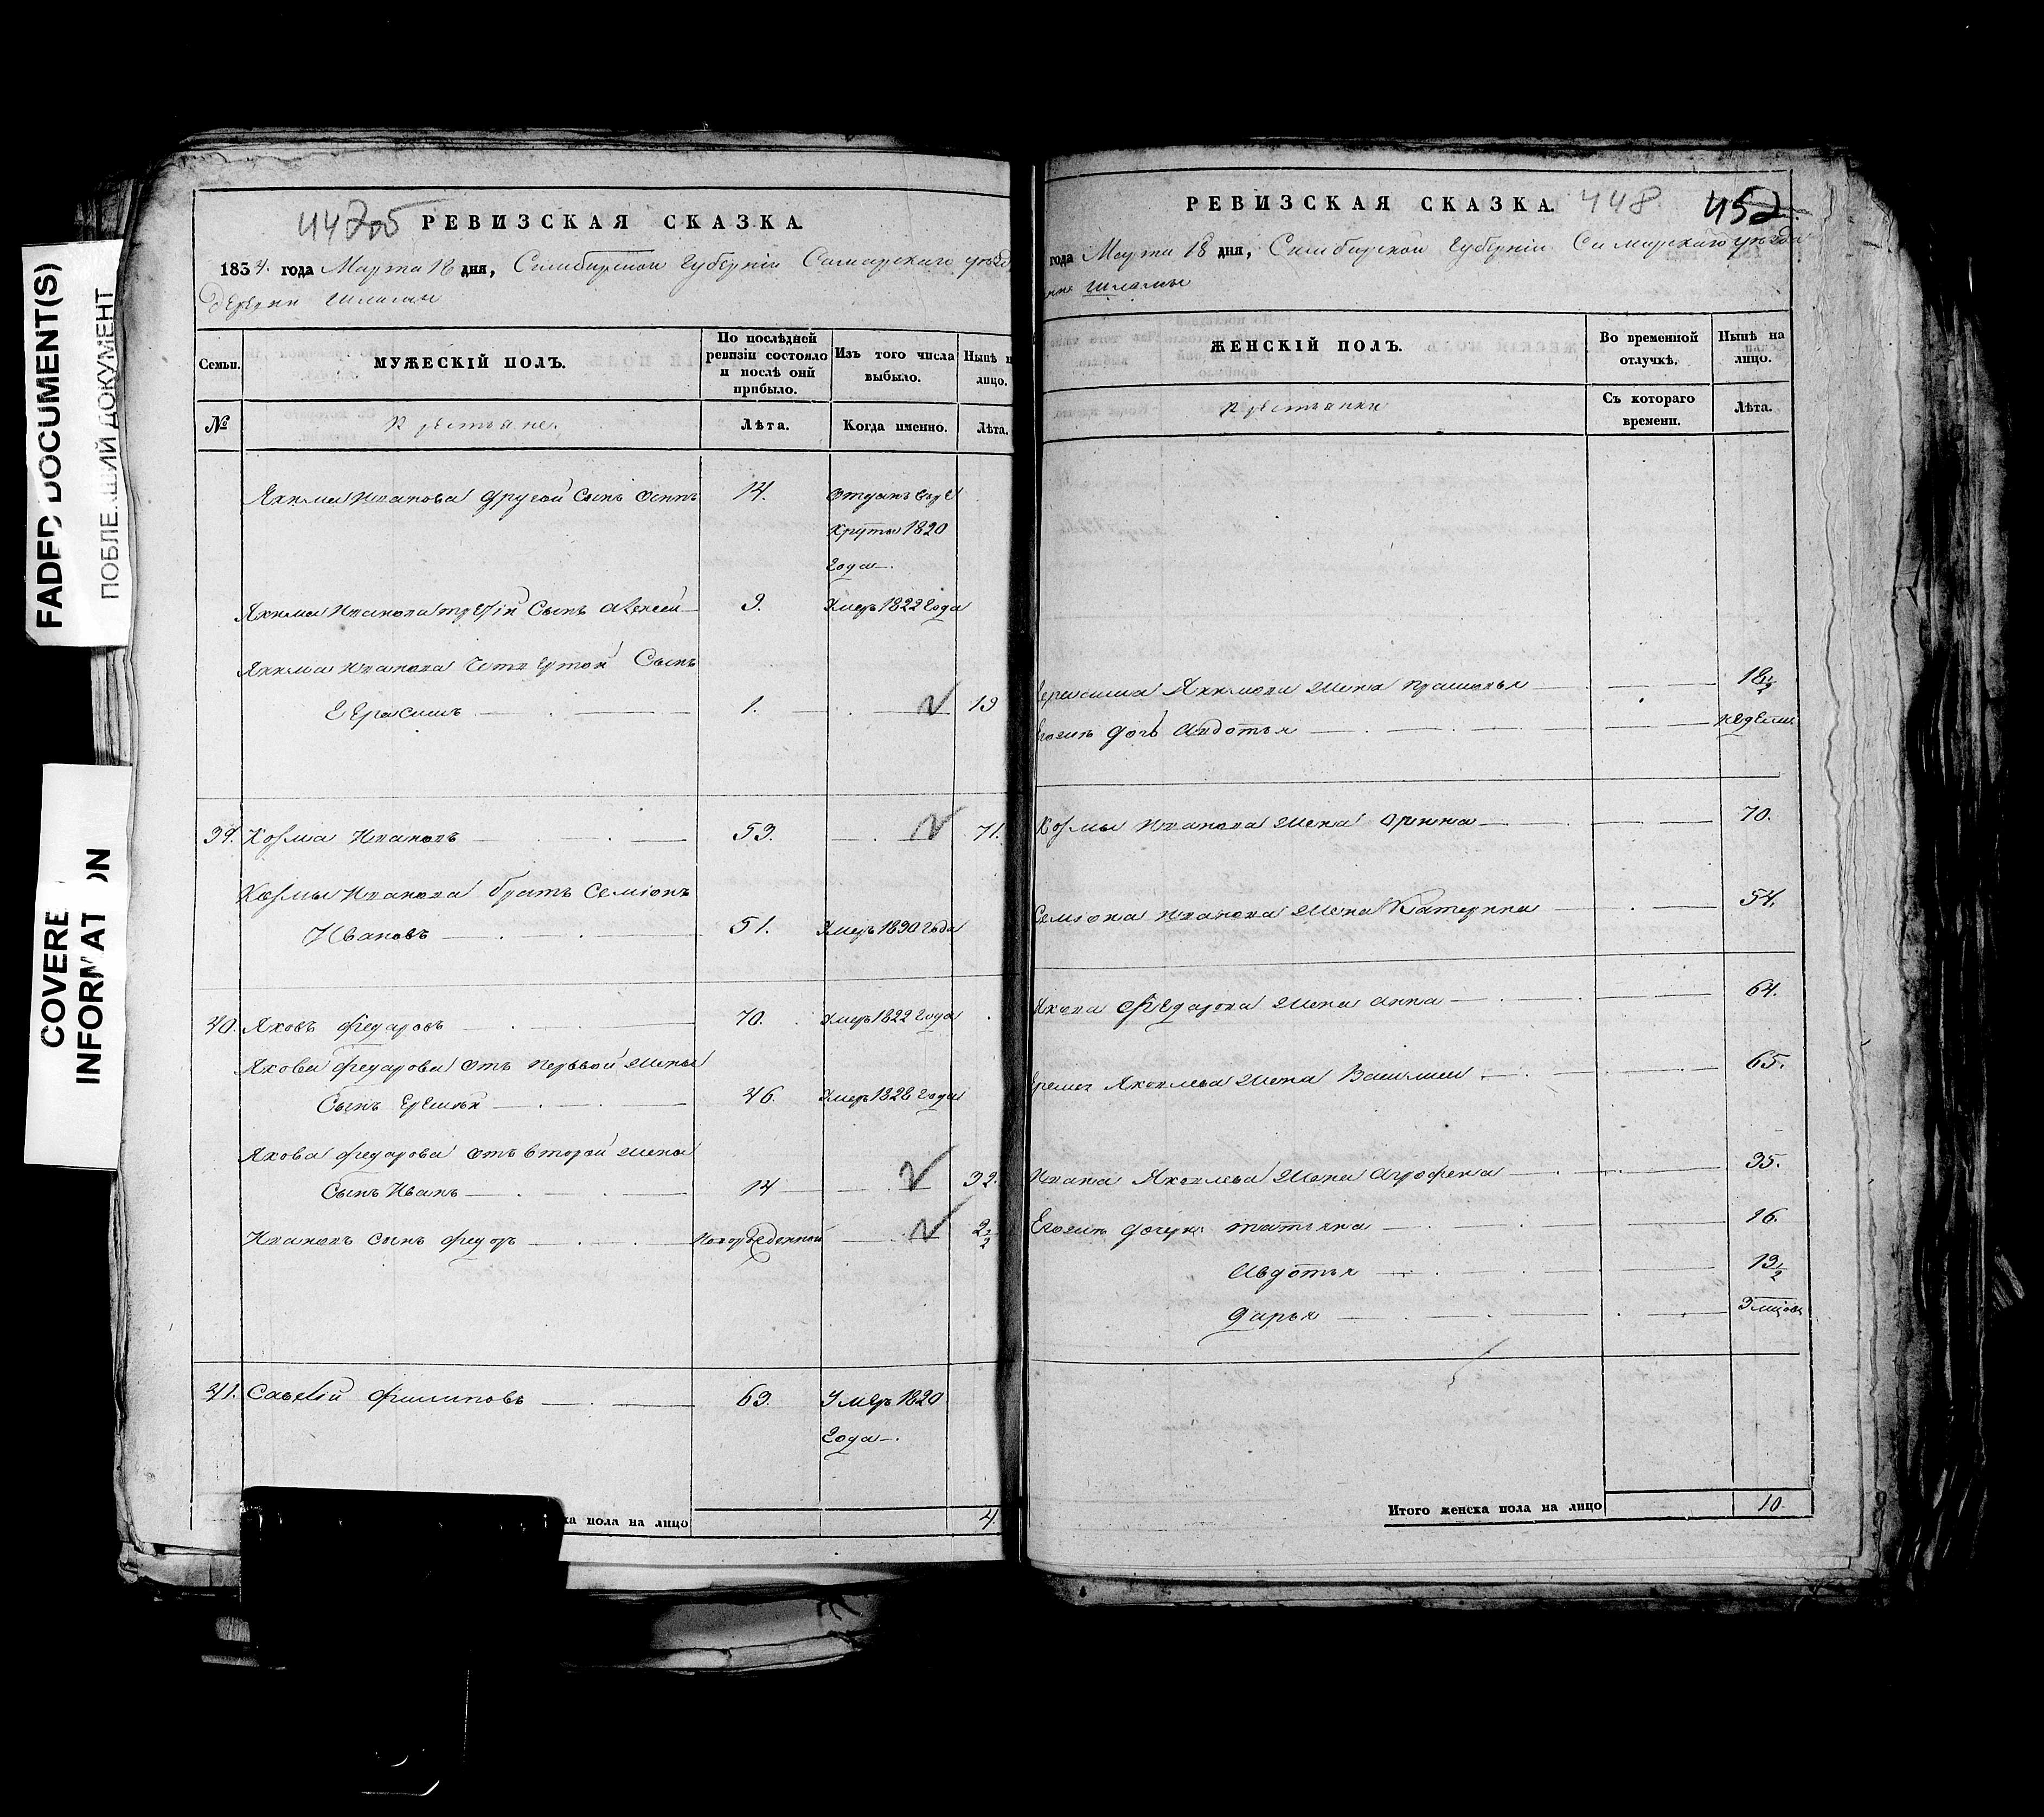 FADED DOCUMENT(S)
ДОКУМЕНТ
COVERE
INFORMAT ON
РЕВИЗСКАЯ СКАЗКА.
1834. года Марта 18 дня, Симбирской Губернiи Самарскаго уезд
деревни Шламы
Семьи.
МУЖЕСКIЙ ПОЛЪ.
По послѣдней ревизiи состояло и послѣ онй прибыло.
Изъ того числа выбыло.
Нынѣ н лицо.
№
Крестьяне.
Лѣта.
Когда именно.
Лѣта.
Якима Иванова другой сынъ осипъ 14. отданъ въ ре
круты 1820
года
Якима Иванова третiй Сынъ алексей 9. Умеръ 1822 года
Якима Иванова четвертой Сынъ
Герасимъ 1. 19
39. Козма Ивановъ 53. 71.
Козмы Иванова братъ Семiонъ
Ивановъ 51. Умеръ 1830 года
40. Яковъ федаровъ 70. Умеръ 1822 года
Якова федарова отъ первой жены
Сынъ Еремѣй 46. Умеръ 1826 года
Якова федарова отъ второй жены
Сынъ Иванъ 14 32.
Ивановъ сынъ федоръ Новорожденной 2 1/2
41. Савелiй филиповъ 63. Умеръ 1820
года
ка пола на лицо 4.
РЕВИЗСКАЯ СКАЗКА. 448. 452
года Марта 18 дня, Симбирской Губернiи Самарскаго уезда
Шламы
ЖЕНСКIЙ ПОЛЪ.
Во временной отлучкѣ.
Нынѣ на лицо.
Крестьянки
Съ котораго времени.
Лѣта.
Герасима Якимова жена прасковья 18 1/2
Егожъ дочь Авдотья недели
Козмы Иванова жена орина 70.
Семiона Иванова жена Катерина 54.
Якова Федарова жена анна 64.
Еремея Яковлева жена Василиса 65.
Ивана Яковлева жена Агрофена 35.
Егожъ дочери татьяна 16.
Авдотья 13 1/2
дарья 3 мцовъ
Итого женска пола на лицо 10.